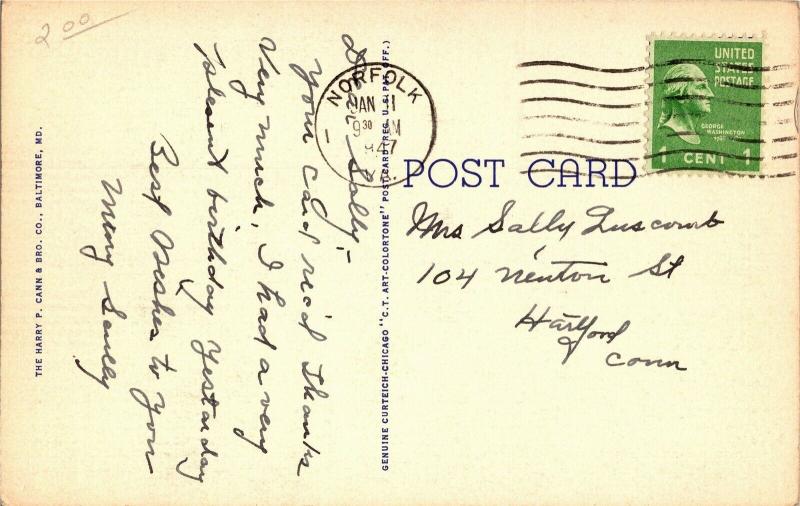 2 00
Dear Sally;-
Your card rec'd Thanks
Very much. I had a very
plesent birthday yestarday
Best Wishes to You
THE HARRY P. CANN & BRO. CO., BALTIMORE, MD.
GENUINE CURTEICH-CHICAGO "C.T. ART-COLORTONE" POSTCARD (REG. U.S. PAT. OFF.)
NORFOLK
JAN
9 30 M
47
UNITED
STATES
POSTAGE
GEORGE
WASHINGTON
1 CENT 1
POST CARD
Mrs Sally Luscomb
104 Newton St
Hartford
Conn